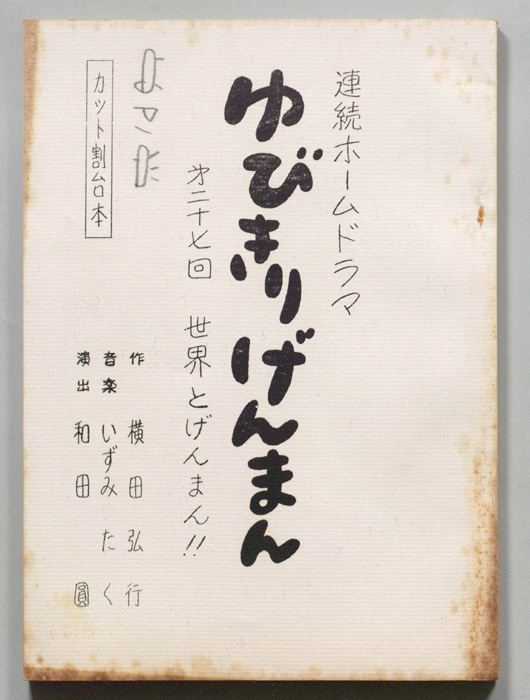 連続ホームドラマ
ゆびきりげんまん
第二十七回 世界とげんまん!!
カット割台本
作 横田弘行
音楽 いずみたく
演出 和田圓